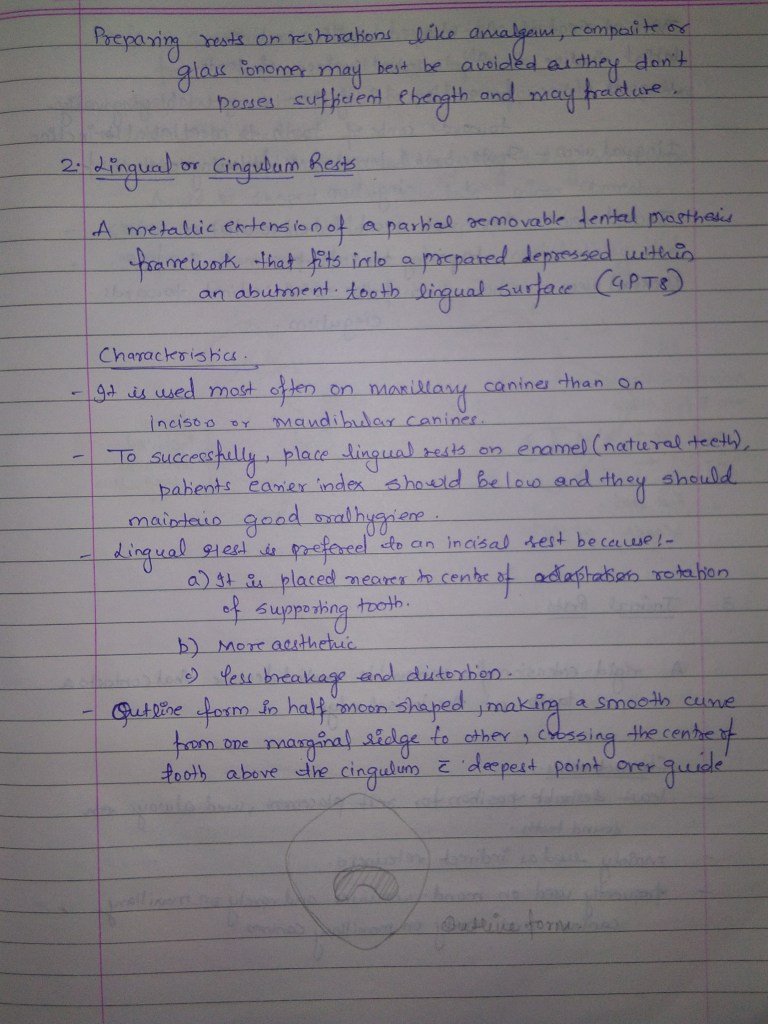 Preparing rests on restorations like amalgam, composite or
glass ionomer may best be avoided as they don't
posses sufficient strength and may fracture.
2. Lingual or Cingulum Rests
A metallic extension of a partial removable dental prosthesis
framework that fits into a prepared depressed within
an abutment tooth lingual surface (GPT8)
Characteristics.
- It is used most often on maxillary canines than on
incisor or mandibular canines.
- To successfully, place lingual rests on enamel (natural teeth),
patients caries index should be low and they should
maintain good oral hygiene.
- Lingual rest is prefered to an incisal rest because:-
a) It is placed nearer to centre of rotation
of supporting tooth.
b) More aesthetic
c) less breakage and distortion.
- Outline form is half moon shaped, making a smooth curve
from one marginal ridge to other, crossing the centre of
tooth above the cingulum c̄ deepest point over guide
Outline form